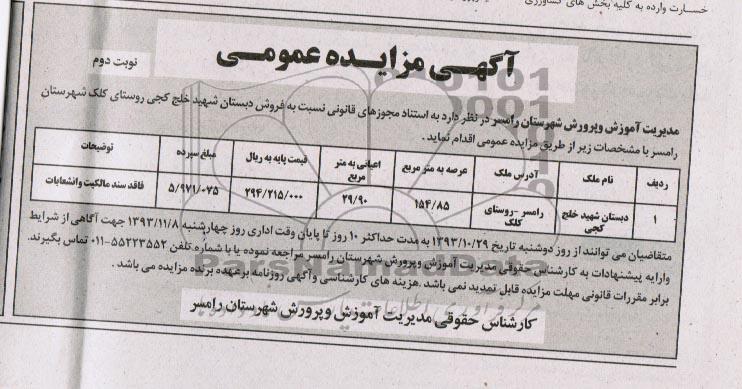 خسارت وارده به کلیه بخش های کشاورزی
آگهی مزایده عمومی
نوبت دوم
مدیریت آموزش وپرورش شهرستان رامسر در نظر دارد به استناد مجوزهای قانونی نسبت به فروش دبستان شهید خلج کجی روستای کلک شهرستان
رامسر با مشخصات زیر از طریق مزایده عمومی اقدام نماید .
ردیف نام ملک آدرس ملک عرصه به متر مربع اعیانی به متر مربع قیمت پایه به ریال مبلغ سپرده توضیحات
۱ دبستان شهید خلج کجی رامسر -روستای کلک ۱۵۴/۸۵ ۲۹/۹۰ ۲۹۴/۲۱۵/۰۰۰ ۵/۹۷۱/۰۲۵ فاقد سند مالکیت وانشعابات
متقاضیان می توانند از روز دوشنبه تاریخ ۱۳۹۳/۱۰/۲۹ به مدت حداکثر ۱۰ روز تا پایان وقت اداری روز چهارشنبه ۱۳۹۳/۱۱/۸ جهت آگاهی از شرایط
وارایه پیشنهادات به کارشناس حقوقی مدیریت آموزش وپرورش شهرستان رامسر مراجعه نموده یا با شماره تلفن ۵۵۲۲۳۵۵۲-۰۱۱ تماس بگیرند.
برابر مقررات قانونی مهلت مزایده قابل تمدید نمی باشد .هزینه های کارشناسی وآگهی روزنامه برعهده برنده مزایده می باشد .
کارشناس حقوقی مدیریت آموزش وپرورش شهرستان رامسر
ParsNamadData